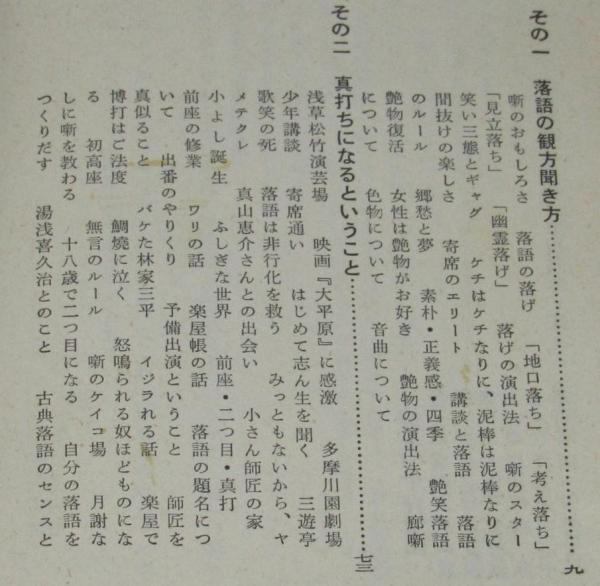 その一　落語の観方聞き方……………………九
噺のおもしろさ　落語の落げ　「地口落ち」　「考え落ち」
「見立落ち」　「幽霊落げ」　落げの演出法　噺のスター
笑い三態とギャグ　ケチはケチなりに、泥棒は泥棒なりに
間抜けの楽しさ　寄席のエリート　講談と落語　落語
のルール　郷愁と夢　素朴・正義感・四季　艶笑落語
艶物復活　女性は艶物がお好き　艶物の演出法　廓噺
について　色物について　音曲について
その二　真打ちになるということ……………………七三
浅草松竹演芸場　映画『大平原』に感激　多摩川園劇場
少年講談　寄席通い　はじめて志ん生を聞く　三遊亭
歌笑の死　落語は非行化を救う　みっともないから、ヤ
メテクレ　真山恵介さんとの出会い　小さん師匠の家
小よし誕生　ふしぎな世界　前座・二つ目・真打
前座の修業　ワリの話　楽屋帳の話　落語の題名につ
いて　出番のやりくり　予備出演ということ　師匠を
真似ること　バケた林家三平　イジラれる話　楽屋で
博打はご法度　鯛焼に泣く　怒鳴られる奴ほどものにな
る　初高座　無言のルール　噺のケイコ場　月謝な
しに噺を教わる　十八歳で二つ目になる　自分の落語を
つくりだす　湯浅喜久治とのこと　古典落語のセンスと